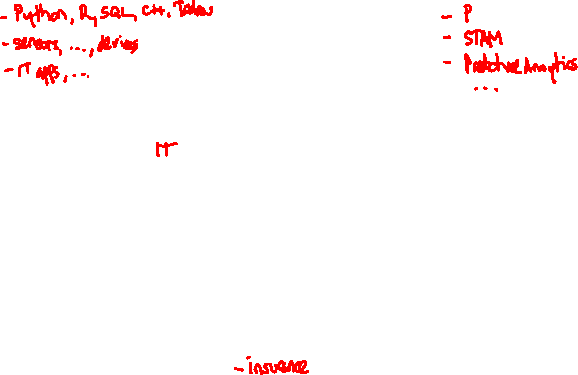 - Python, R, SQL, C++, Tableau
- sensors, ..., devices
- IT apps, ...
- P
- STAM
- Predictive Analytics
...
IT
- insurance